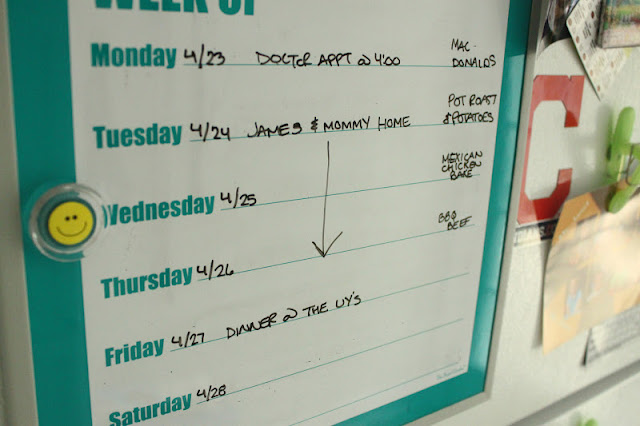 WEEK OF
Monday 4/23 DOCTOR APPT @ 4:00
MAC-
DONALDS
Tuesday 4/24 JAMES & MOMMY HOME
POT ROAST
& POTATOES
Wednesday 4/25
MEXICAN
CHICKEN
BAKE
Thursday 4/26
BBQ
BEEF
Friday 4/27 DINNER @ THE UY'S
Saturday 4/28
C